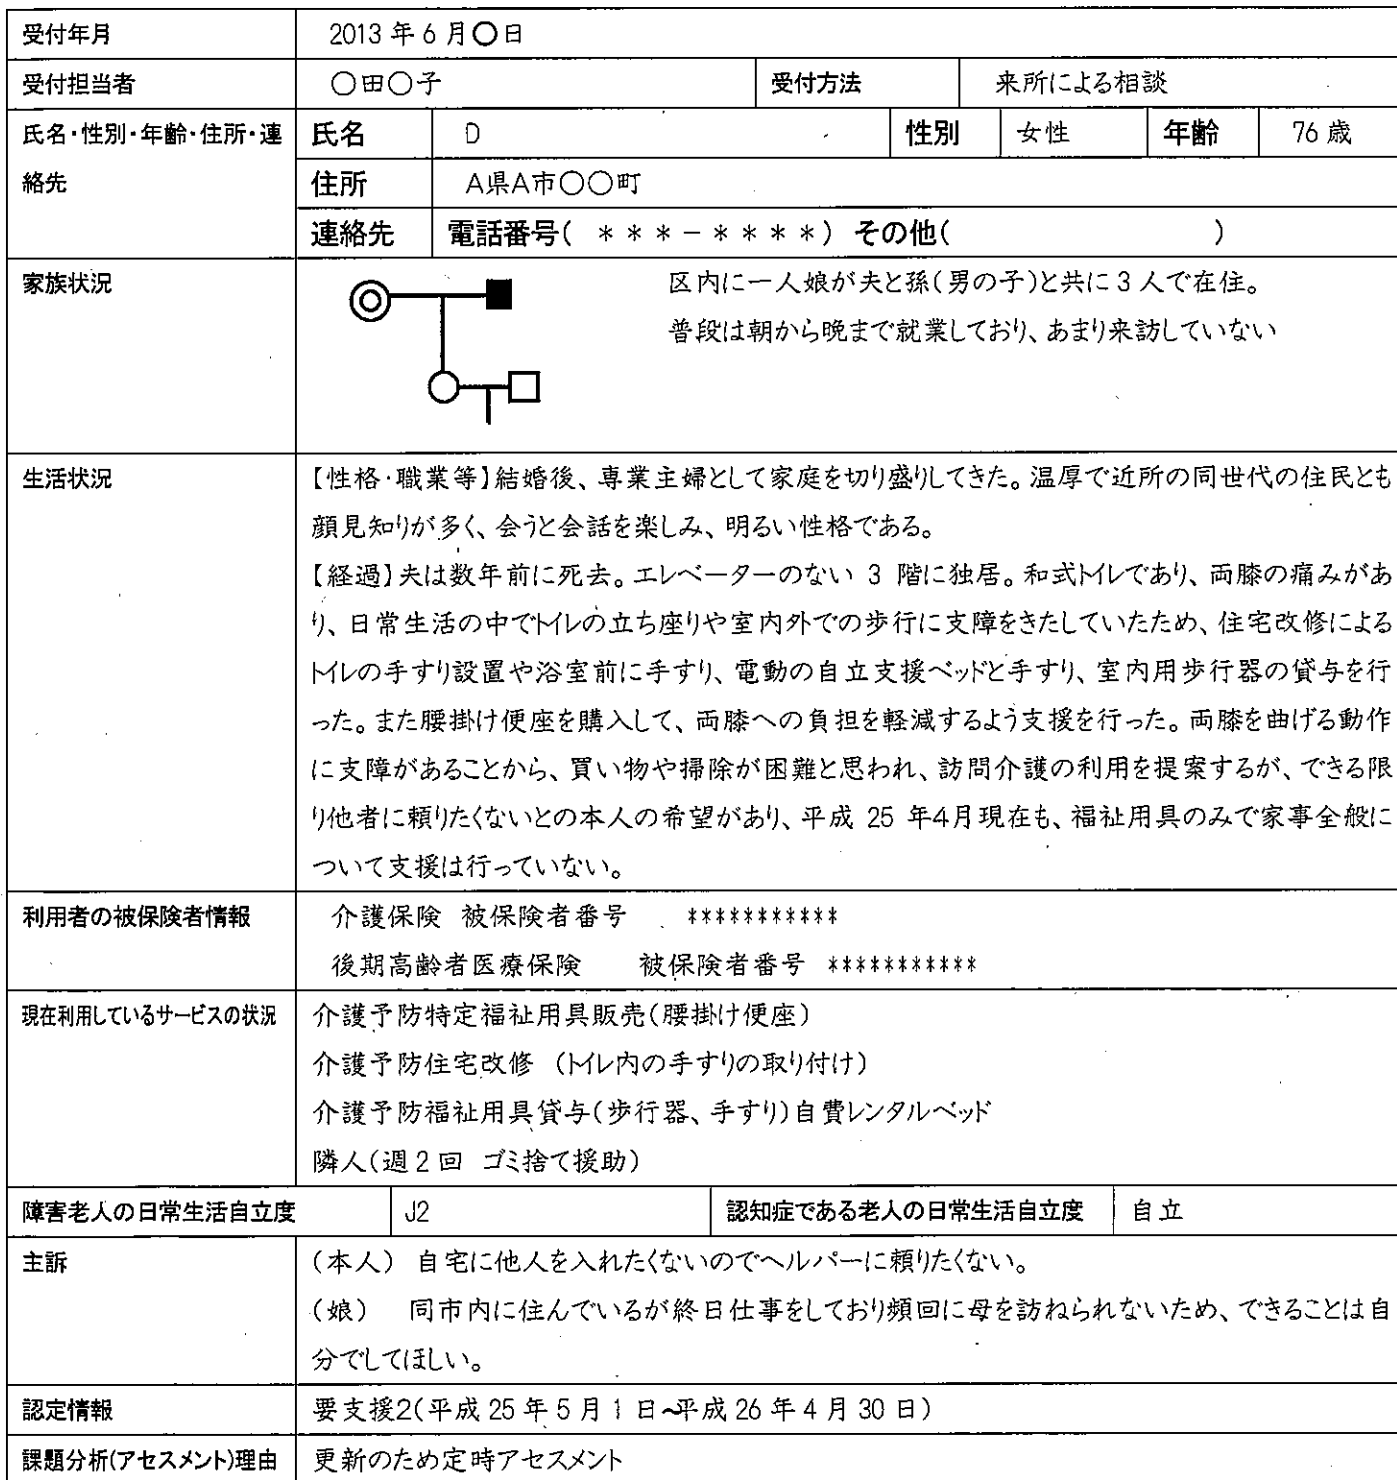 受付年月 2013 年 6 月〇日
受付担当者 〇田〇子 受付方法 来所による相談
氏名・性別・年齢・住所・連 氏名 D 性別 女性 年齢 76 歳
絡先 住所 A県A市〇〇町
連絡先 電話番号( ***-****) その他( )
家族状況 区内に一人娘が夫と孫(男の子)と共に 3 人で在住。
普段は朝から晩まで就業しており、あまり来訪していない
生活状況 【性格・職業等】結婚後、専業主婦として家庭を切り盛りしてきた。温厚で近所の同世代の住民とも
顔見知りが多く、会うと会話を楽しみ、明るい性格である。
【経過】夫は数年前に死去。エレベーターのない 3 階に独居。和式トイレであり、両膝の痛みがあ
り、日常生活の中でトイレの立ち座りや室内外での歩行に支障をきたしていたため、住宅改修による
トイレの手すり設置や浴室前に手すり、電動の自立支援ベッドと手すり、室内用歩行器の貸与を行
った。また腰掛け便座を購入して、両膝への負担を軽減するよう支援を行った。両膝を曲げる動作
に支障があることから、買い物や掃除が困難と思われ、訪問介護の利用を提案するが、できる限
り他者に頼りたくないとの本人の希望があり、平成 25 年4月現在も、福祉用具のみで家事全般に
ついて支援は行っていない。
利用者の被保険者情報 介護保険 被保険者番号 ***********
後期高齢者医療保険 被保険者番号 ***********
現在利用しているサービスの状況 介護予防特定福祉用具販売(腰掛け便座)
介護予防住宅改修 (トイレ内の手すりの取り付け)
介護予防福祉用具貸与(歩行器、手すり)自費レンタルベッド
隣人(週 2 回 ゴミ捨て援助)
障害老人の日常生活自立度 J2 認知症である老人の日常生活自立度 自立
主訴 (本人) 自宅に他人を入れたくないのでヘルパーに頼りたくない。
(娘) 同市内に住んでいるが終日仕事をしており頻回に母を訪ねられないため、できることは自
分でしてほしい。
認定情報 要支援2(平成 25 年 5 月 1 日~平成 26 年 4 月 30 日)
課題分析(アセスメント)理由 更新のため定時アセスメント